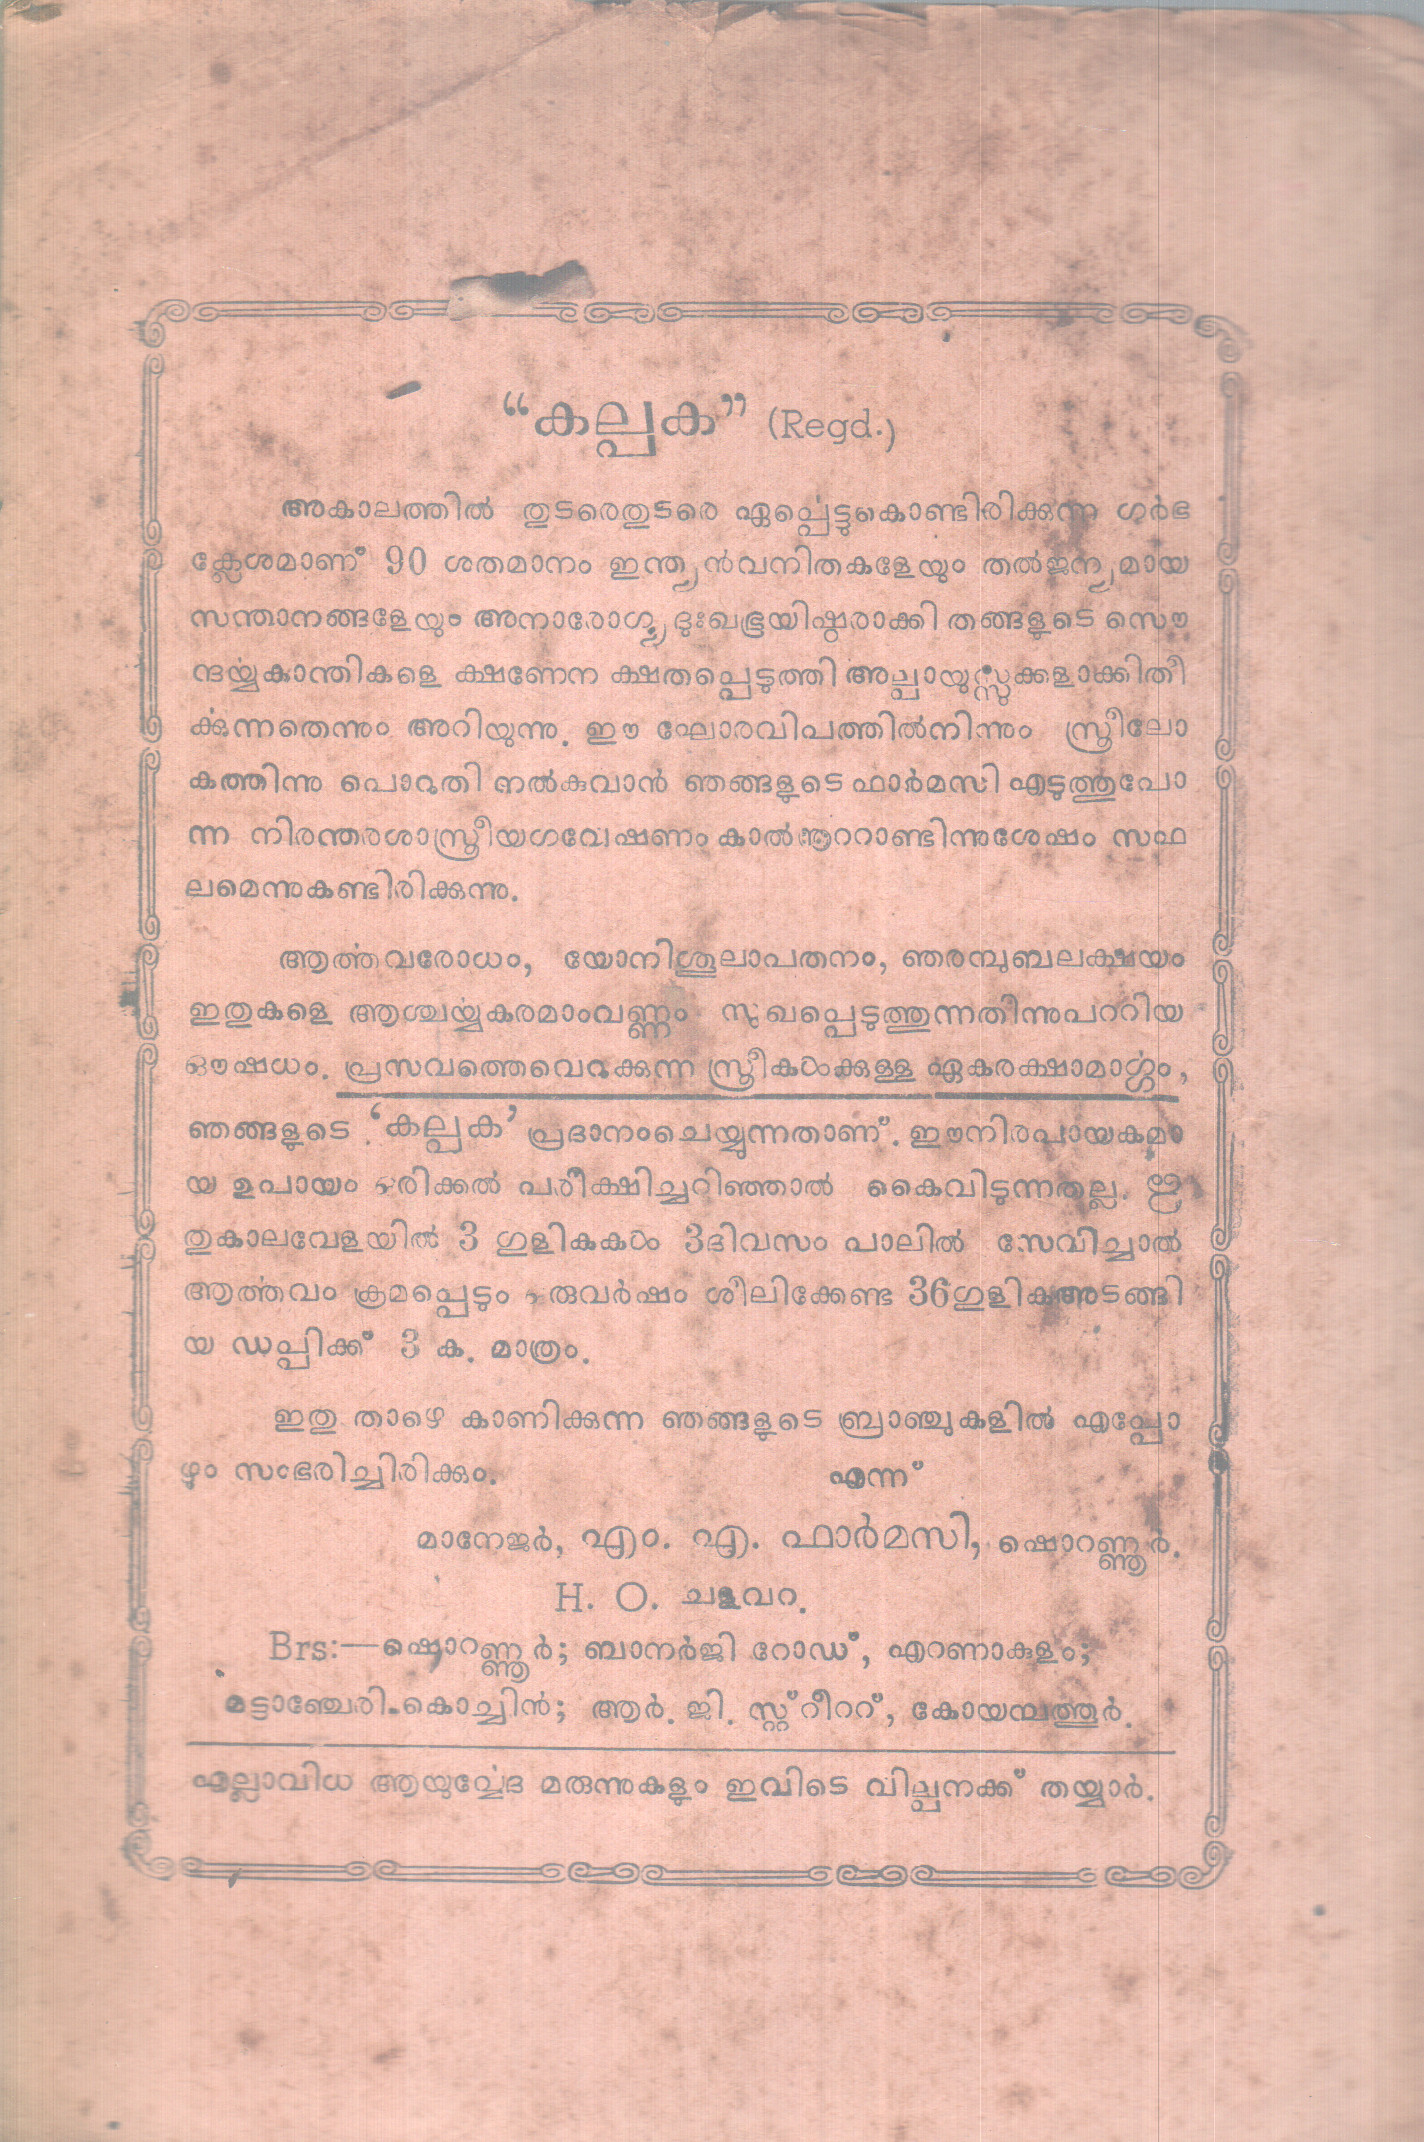 “കല്പക” (Regd.)
അകാലത്തിൽ തുടരെതുടരെ ഏൎപ്പെട്ടുകൊണ്ടിരിക്കുന്ന ഗൎഭ
ക്ലേശമാണ് 90 ശതമാനം ഇന്ത്യൻവനിതകളേയും തൽജന്യമായ
സന്താനങ്ങളേയും അനാരോഗ്യദുഃഖഭൂയിഷ്ഠരാക്കി തങ്ങളുടെ സൌ
ന്ദൎയ്യകാന്തികളെ ക്ഷണേന ക്ഷതപ്പെടുത്തി അല്പായുസ്സുക്കളാക്കിതീ
ൎക്കുന്നതെന്നും അറിയുന്നു. ഈ ഘോരവിപത്തിൽനിന്നും സ്ത്രീലോ
കത്തിന്നു പൊറുതി നൽകുവാൻ ഞങ്ങളുടെ ഫാർമസി എടുത്തുപോ
ന്ന നിരന്തരശാസ്ത്രീയഗവേഷണം കാൽനൂററാണ്ടിന്നുശേഷം സഫ
ലമെന്നുകണ്ടിരിക്കുന്നു.
ആൎത്തവരോധം, യോനിശൂലാപതനം, ഞരമ്പുബലക്ഷയം
ഇതുകളെ ആശ്ചൎയ്യകരമാംവണ്ണം സുഖപ്പെടുത്തുന്നതിന്നുപററിയ
ഔഷധം. പ്രസവത്തെവെറുക്കുന്ന സ്ത്രീകൾക്കുള്ള ഏകരക്ഷാമാൎഗ്ഗം,
ഞങ്ങളുടെ ‘കല്പക’ പ്രദാനംചെയ്യുന്നതാണ്. ഈനിരപായകമാ
യ ഉപായം ഒരിക്കൽ പരീക്ഷിച്ചറിഞ്ഞാൽ കൈവിടുന്നതല്ല. ഋ
തുകാലവേളയിൽ 3 ഗുളികകൾ 3ദിവസം പാലിൽ സേവിച്ചാൽ
ആൎത്തവം ക്രമപ്പെടും ഒരുവർഷം ശീലിക്കേണ്ട 36ഗുളികഅടങ്ങി
യ ഡപ്പിക്ക് 3 ക. മാത്രം.
ഇതു താഴെ കാണിക്കുന്ന ഞങ്ങളുടെ ബ്രാഞ്ചുകളിൽ എപ്പോ
ഴും സംഭരിച്ചിരിക്കും. എന്ന്
മാനേജർ, എം. എ. ഫാർമസി, ഷൊറണ്ണൂർ.
H. O. ചളവറ.
Brs:—ഷൊറണ്ണൂർ; ബാനർജി റോഡ്, എറണാകുളം;
മട്ടാഞ്ചേരി-കൊച്ചിൻ; ആർ. ജി. സ്റ്റ്രീററ്, കോയമ്പത്തൂർ.
എല്ലാവിധ ആയുൎവ്വേദ മരുന്നുകളും ഇവിടെ വില്പനക്ക് തയ്യാർ.